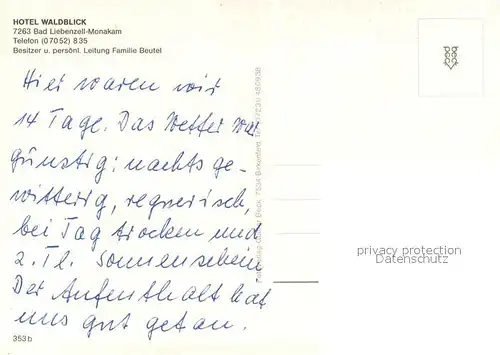 HOTEL WALDBLICK
7263 Bad Liebenzell-Monakam
Telefon (07052) 835
Besitzer u. persönl. Leitung Familie Beutel
Hier waren wir
14 Tage. Das Wetter war
günstig: nachts ge-
witterig, regnerisch,
bei Tag trocken und
z. Tl. Sonnenschein
Der Aufenthalt hat
uns gut getan.
353b
Beck, 7534 Birkenfeld,
privacy protection
Datenschutz